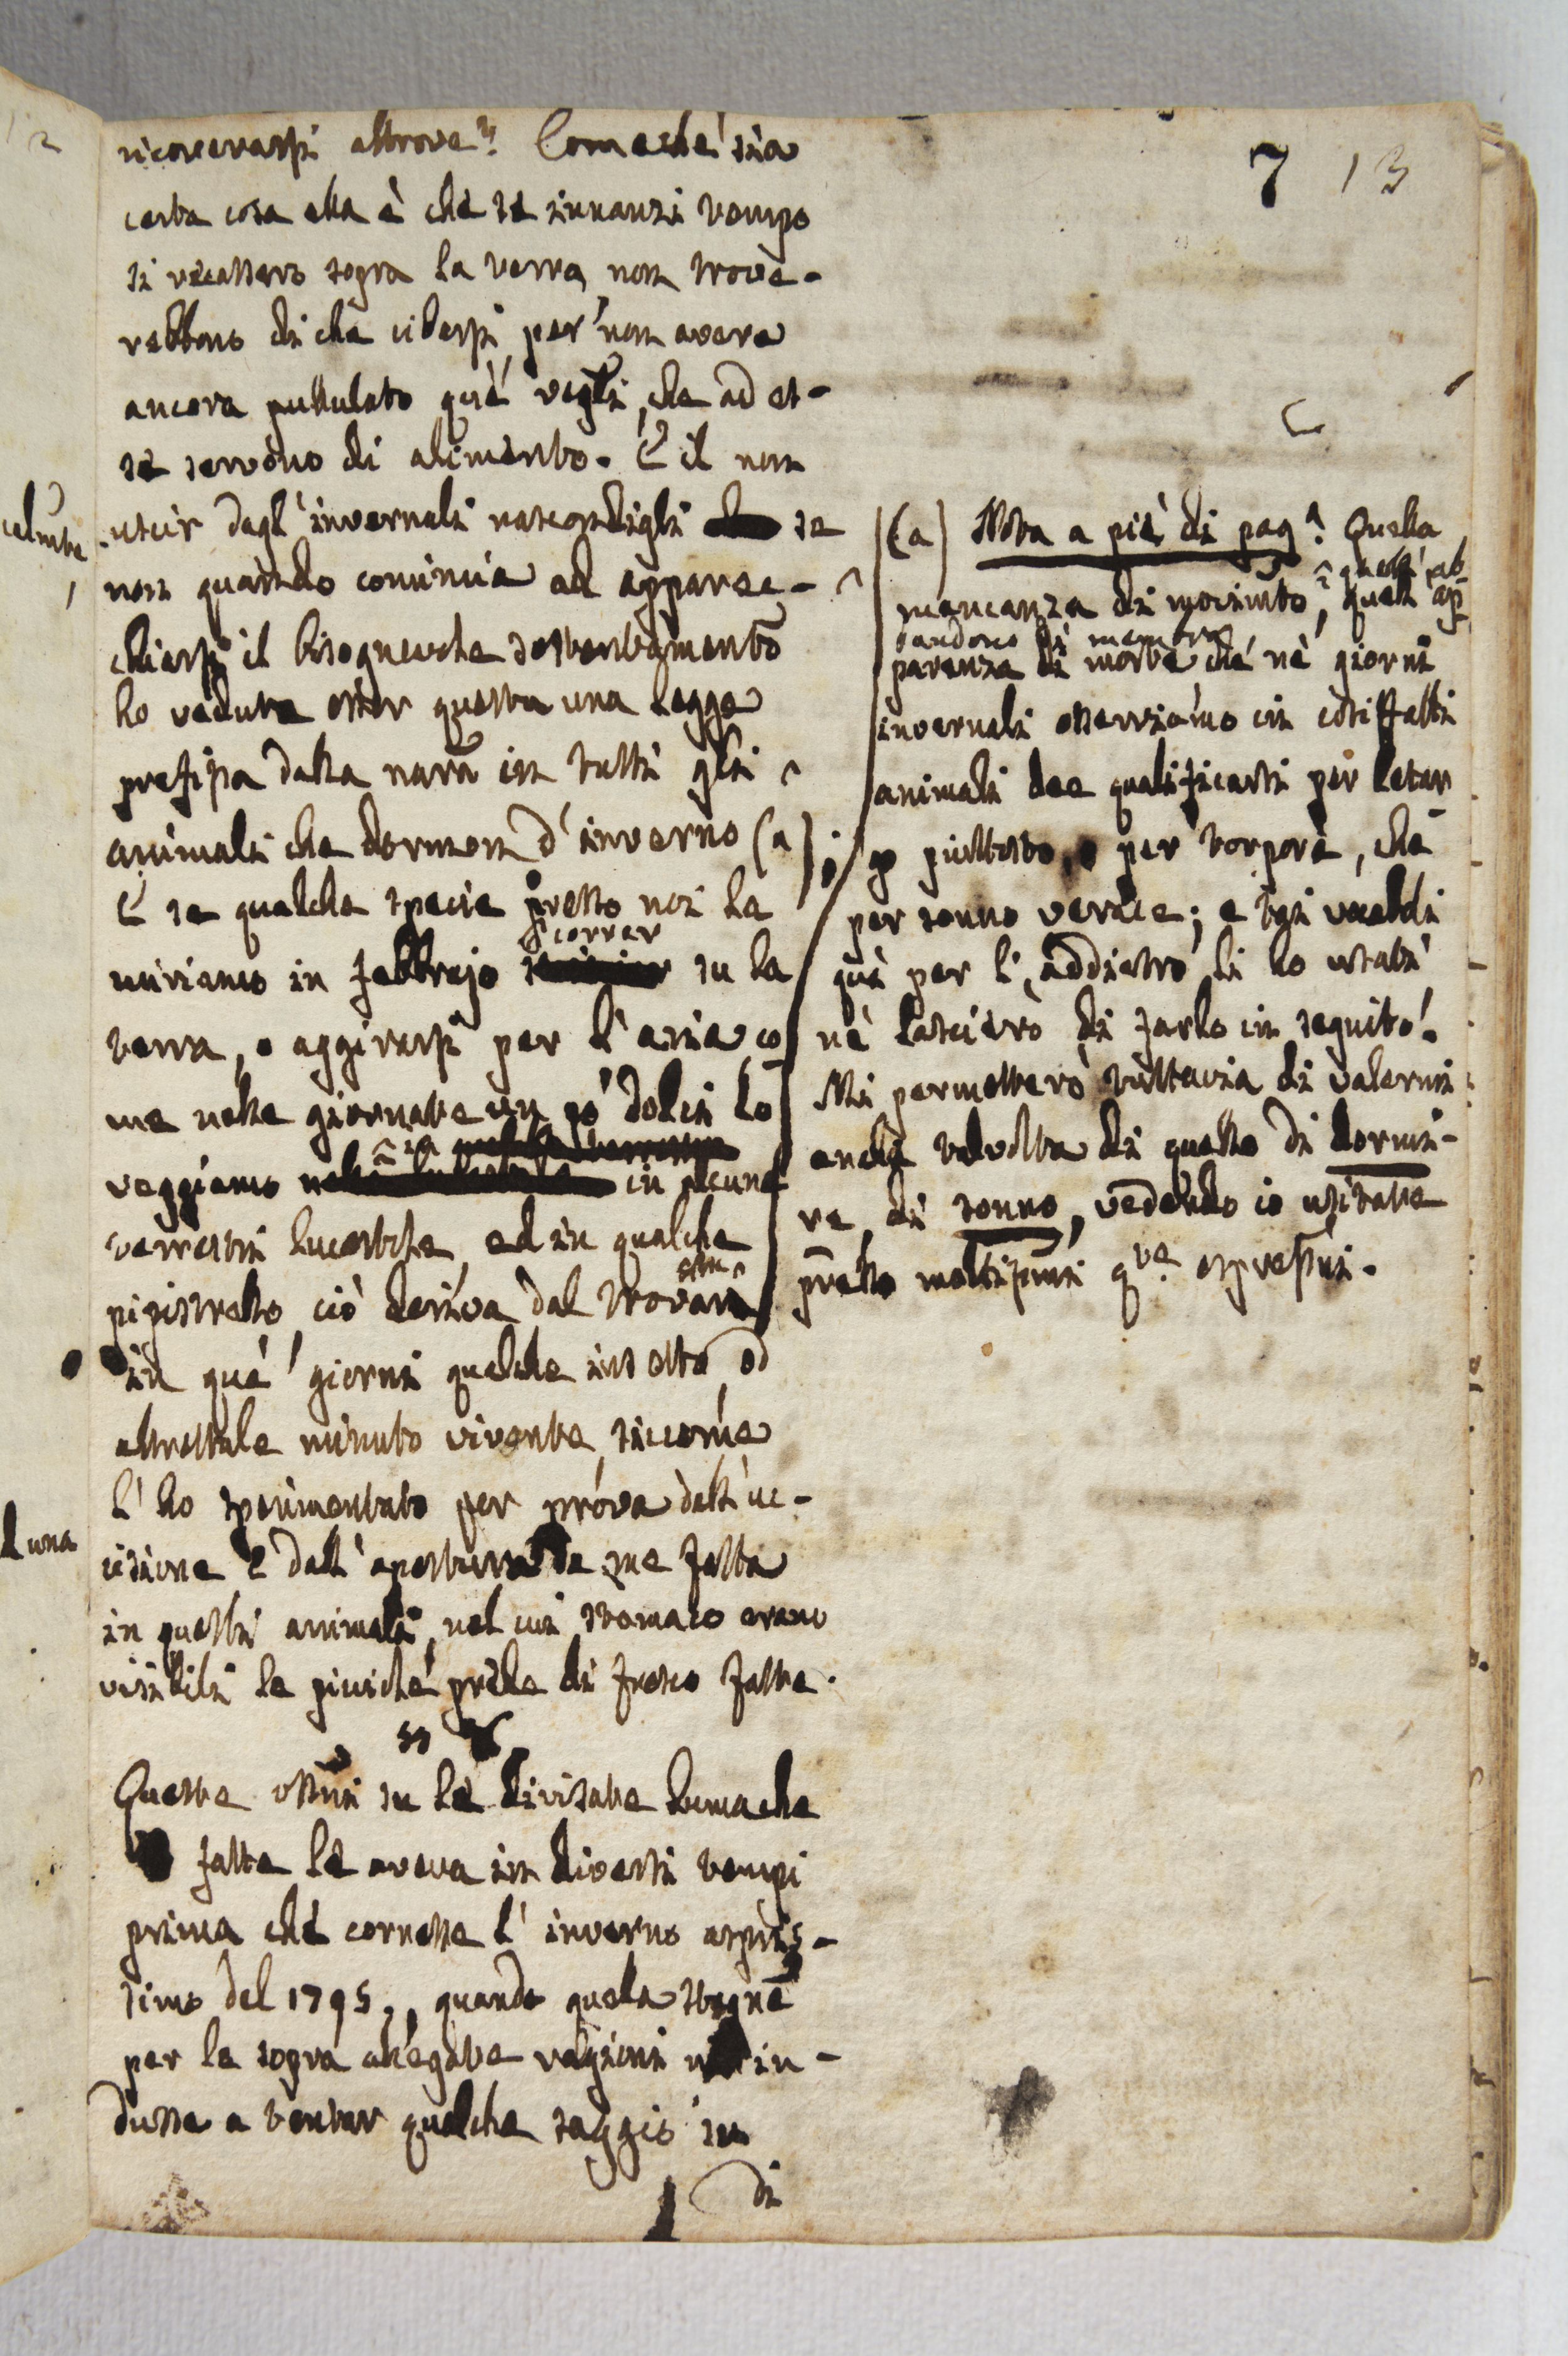 7 13
ricoverarsi altrove? Comechè sia
certa cosa ella è che se innanzi tempo
si recassero sopra la terra, non trove-
rebbono di che cibarsi, per non avere
ancora pullulato que' vegli, che ad es-
se servono di alimento. E il non
uscir dagl' invernali nascondigli se
non quando comincia ad apparec-
chiarsi il bisognevole sostentamento
ho veduto esser questa una legge
prefissa dalla nara in tutti gli
animali che dormon d' inverno (a);
E se qualche specie presso noi la
miriamo in febbrajo scorrer su la
terra, o aggirarsi per l' aria, co
me nelle giornate un po' dolci lo
veggiamo in alcune
terrestri lucertole, ed in qualche
pipistrello, ciò deriva dal trovar essi
in que' giorni qualche insetto, od
altrettale minuto vivente, siccome
l' ho sperimentato per prova dall' uc-
cisione e dall' apertura da me fatta
in questi animali, nel cui stomaco erano
visibili le picciole prede di fresco fatte.
Queste ossni su le divisate lumache
fatte le aveva in diversi tempi
prima che cornesse l' inverno aspris-
simo del 1795, quando quella stagne
per le sopra allegate ragioni in-
dusse a tentar qualche saggio su
di
(a) Nota a piè di pag.ª Quella
mancanza di movimto, quell' ap
parenza di morte che nè giorni
invernali osserviamo in cosiffatti
animali dee qualificarsi per letar
go piuttosto, o per torpore, che
per sonno verace; e tai vocaboli
quì per l' addietro li ho usati,
nè lascierò di farlo in seguito.
Mi permetterò tuttavia di valermi
anche talvolta di quello di dormi-
re, di sonno, vedendo io usitate
presso moltissimi q.te espressni.